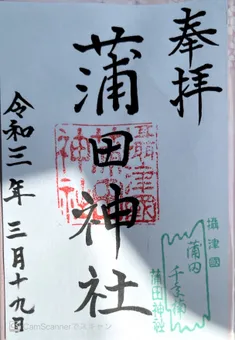 奉拝
攝津國
蒲田神社
蒲田神社
令和三年 三月十九日
CamScannerでスキャン